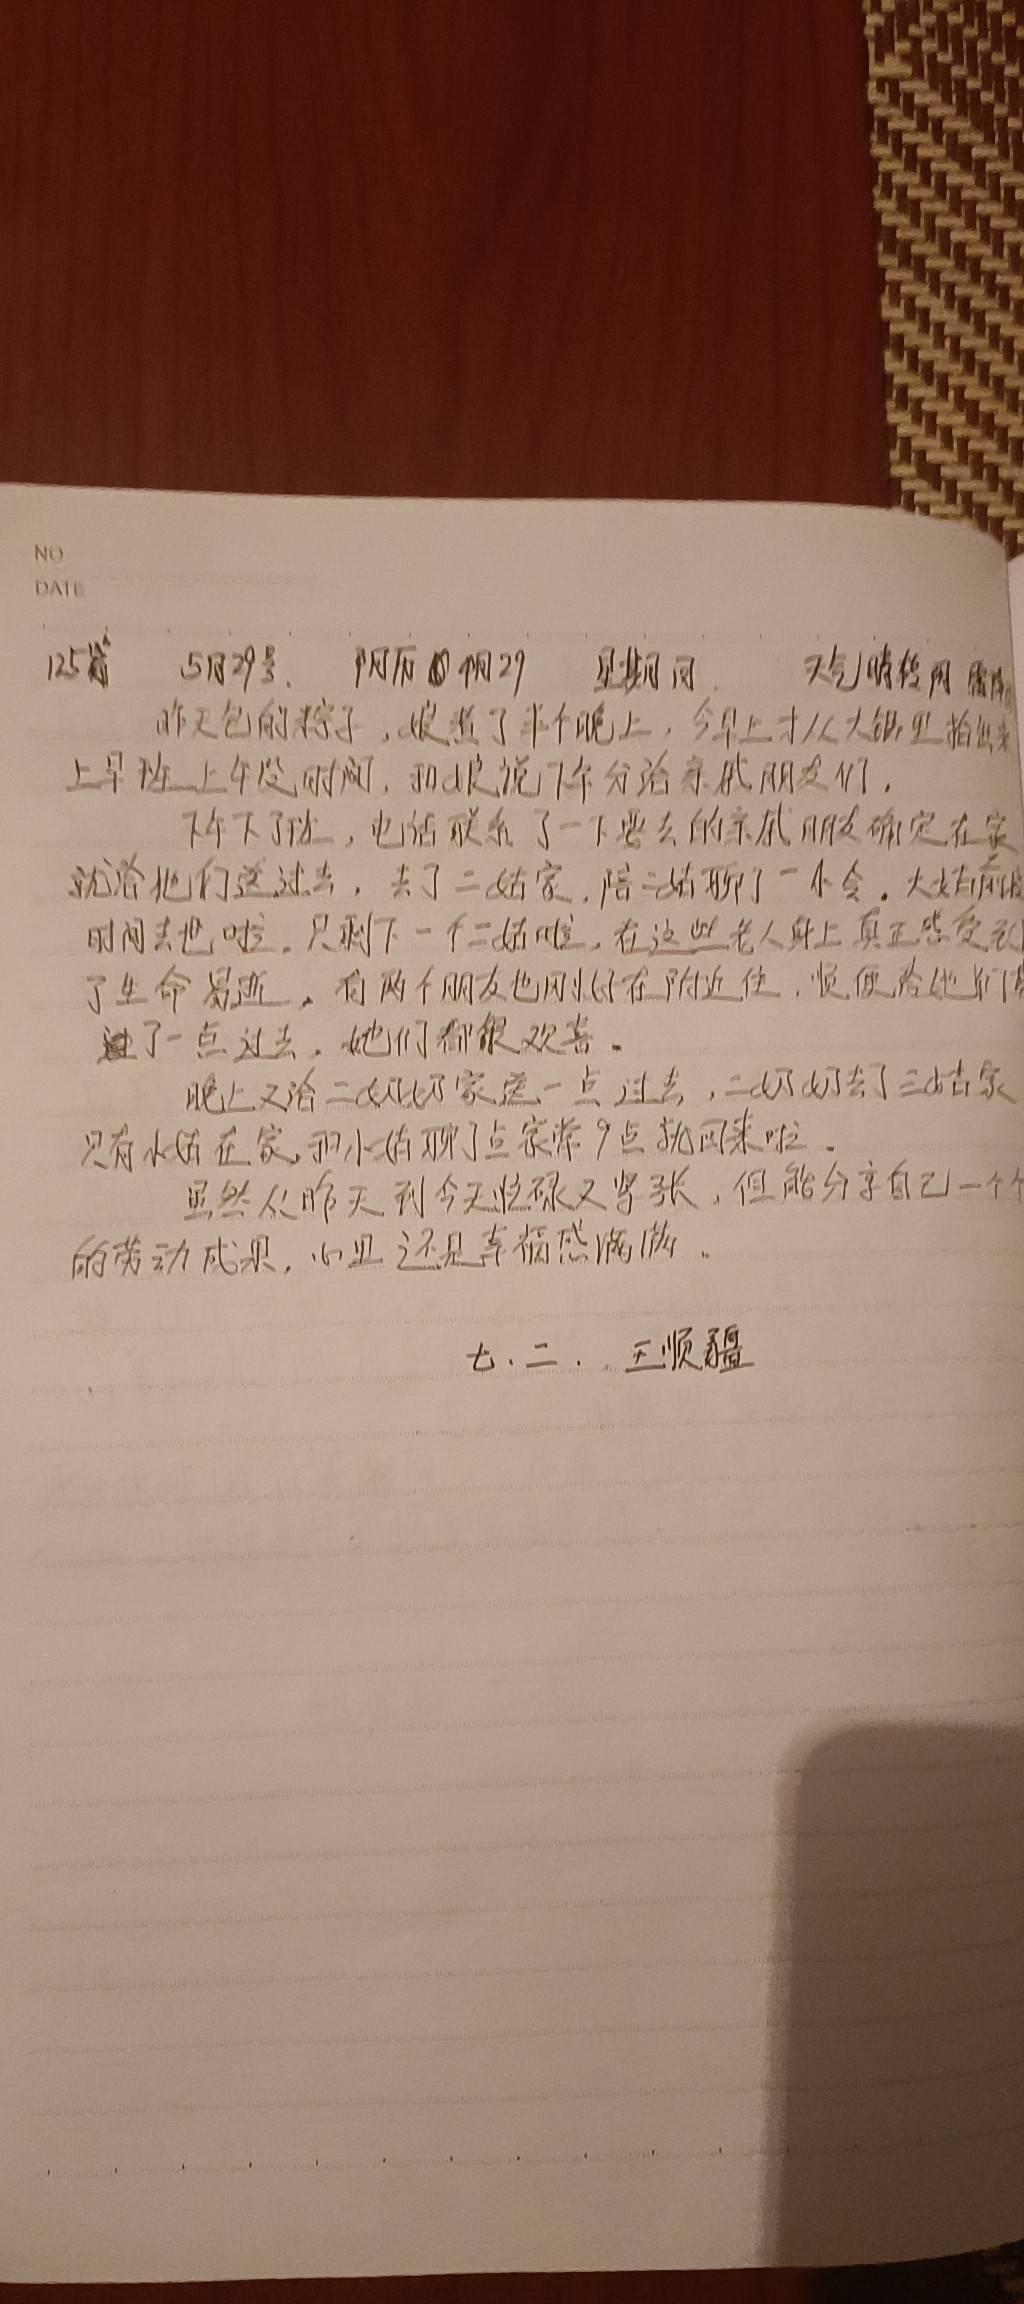 NO
DATE
125篇 5月29号. 阴历 4月29 星期 天气晴转阴
昨天包的粽子,娘煮了半个晚上,今早上才从大锅里拾出来
上早班上午没时间,和娘说下午分给亲戚朋友们.
下午下了班,电话联系了一下要去的亲戚朋友确定在家
就给他们送过去,去了二姑家,陪二姑聊了一小会.大姑前段
时间去世啦,只剩下一个二姑啦,在这些老人身上真正感受到
了生命易逝.有两个朋友也刚好在附近住,顺便给她们
了一点过去.她们都很欢喜.
晚上又给二奶奶家送一点过去,二奶奶去了三姑家
只有小姑在家,和小姑聊了点家常9点就回来啦.
虽然从昨天到今天忙碌又紧张,但能分享自己一个个
的劳动成果,心里还是幸福感满满.
七.二. 王顺疆